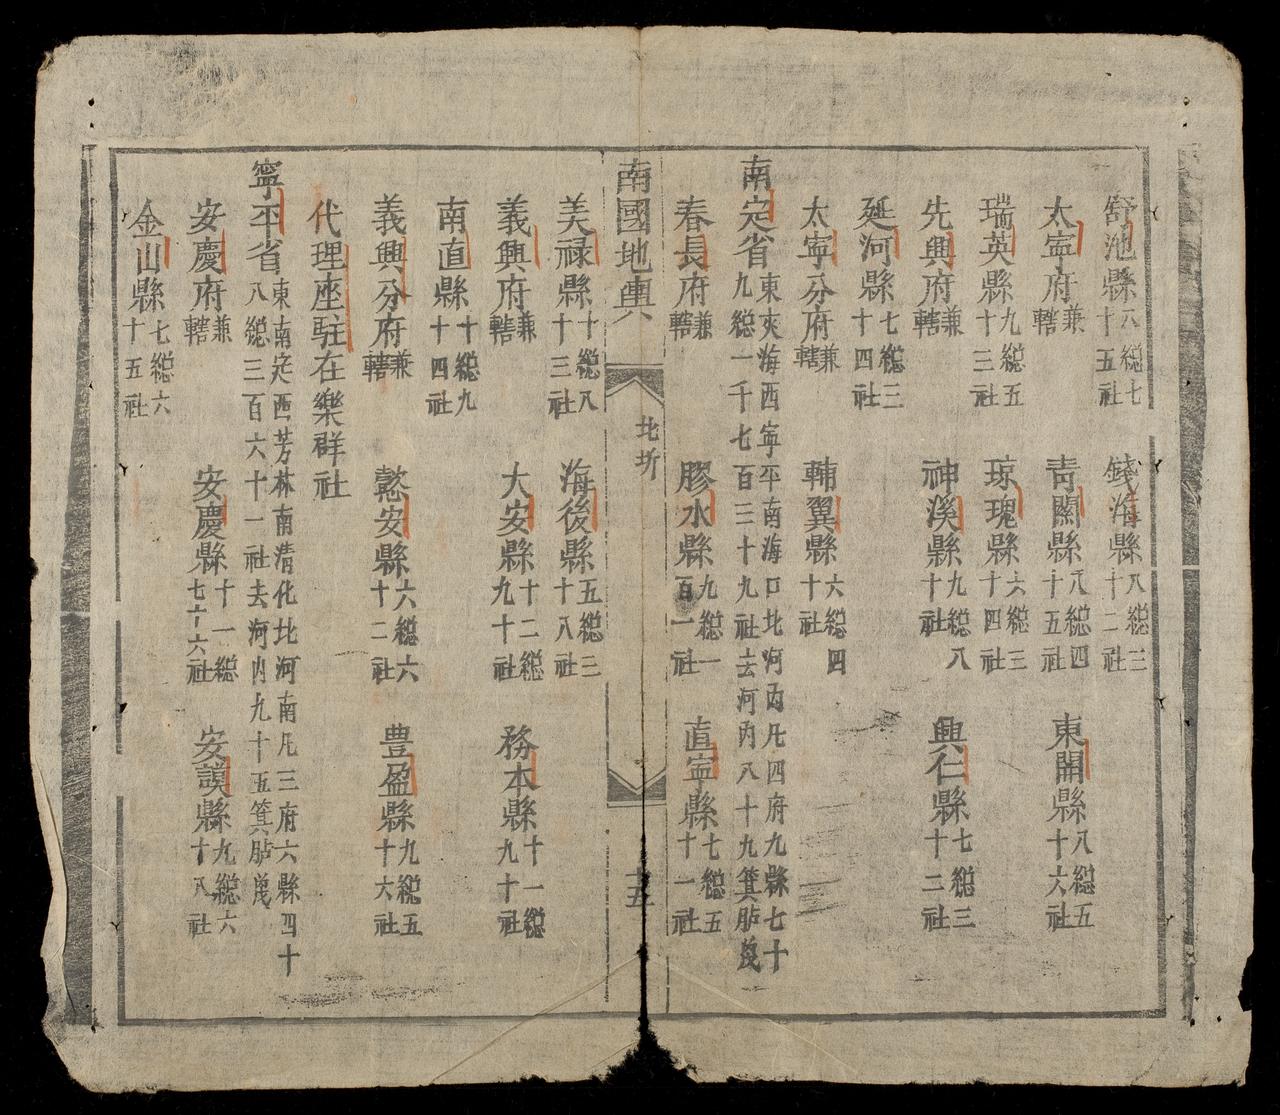 舒池縣八總七十五社 錢海縣八總三十二社
太寧府兼轄 青關縣八總四十五社 東關縣八總五十六社
瑞英縣九總五十三社 瓊瑰縣六總三十四社
先興府兼轄 神溪縣九總八十社 興仁縣七總三十二社
延河縣七總三十四社
太寧分府兼轄 輔翼縣六總四十社
南定省東夾海西寧平南海口北河內凡四府九縣七十九總一千七百三十九社去河內八十九箕𨁪𦒹
春長府兼轄 膠水縣九總一百一社 直寧縣七總五十一社
南國地輿 北圻 十五
美祿縣十總八十三社 海後縣五總三十八社
義興府兼轄 大安縣十二總九十社 務本縣十一總九十社
南直縣十總九十四社
義興分府兼轄 懿安縣六總六十二社 豊盈縣九總五十六社
代理座駐在樂群社
寧平省東南定西芳林南清化北河南凡三府六縣四十八總三百六十一社去河內九十五箕
安慶府兼轄 安慶縣十一總七十六社 安謨縣九總六十八社
金山縣七總六十五社